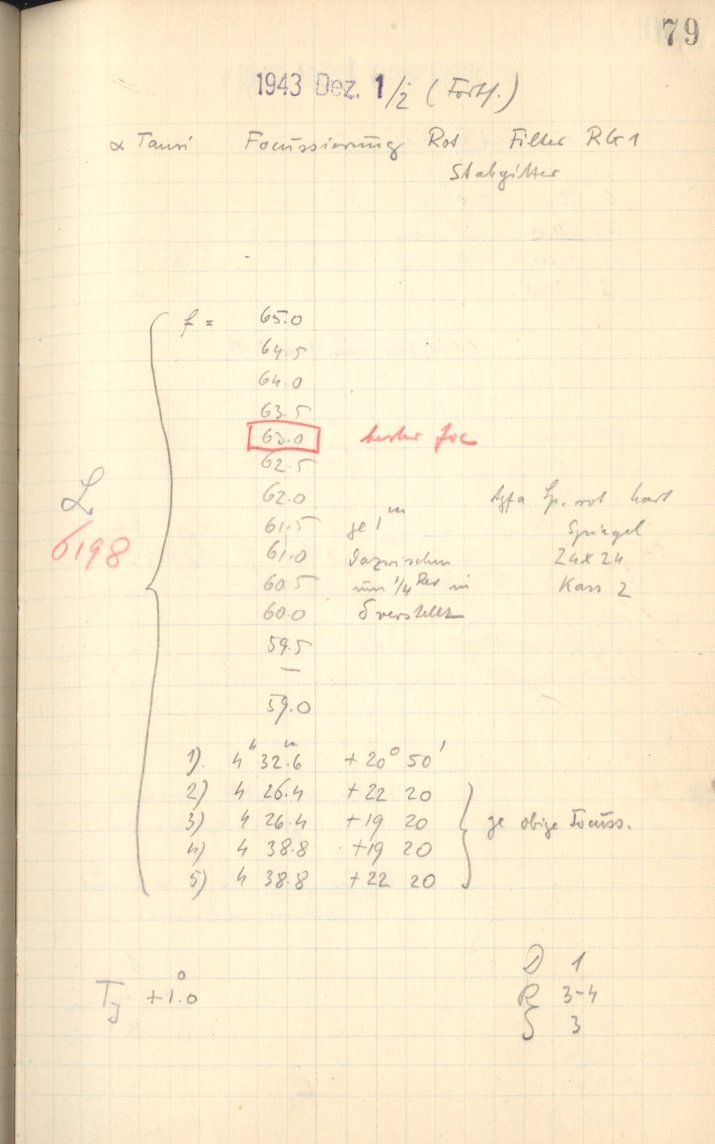 79
1943 Dez. 1/2 (Forts.)
α Tauri Focussierung Rot Filter RG1
Stabgitter
f = 65.0
64.5
64.0
63.5
63.0 bester Foc
62.5
62.0 Agfa Sp. rot hart
61.5 je 1ᵐ Spiegel
61.0 dazwischen 24x24
60.5 um 1/4 Rev in Kass 2
60.0 δ verstellt
59.5
—
59.0
L
6198
1). 4ʰ 32.6ᵐ +20° 50'
2) 4 26.4 +22 20
3) 4 26.4 +19 20
4) 4 38.8 +19 20
5) 4 38.8 +22 20
je obige Focuss.
+1.0°
D 1
R 3-4
S 3